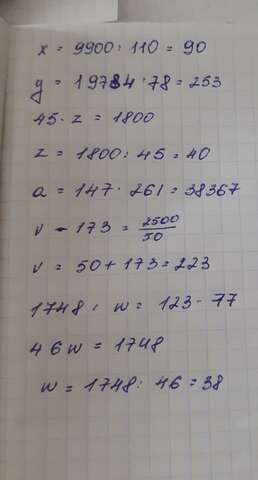 x = 9900 : 110 = 90
y = 19734 : 78 = 253
45 · z = 1800
z = 1800 : 45 = 40
a = 147 · 261 = 38367
v - 173 = 2500/50
v = 50 + 173 = 223
1748 : w = 123 - 77
46 w = 1748
w = 1748 : 46 = 38